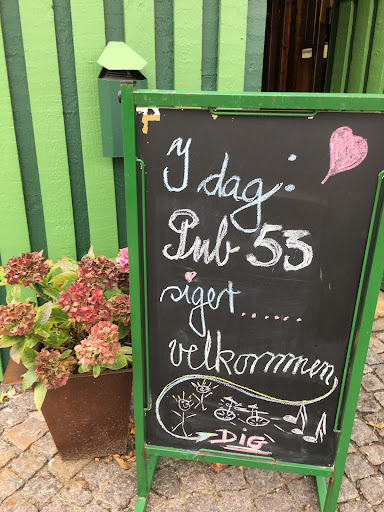 I dag:
Pub 53
siger......
velkommen
DIG